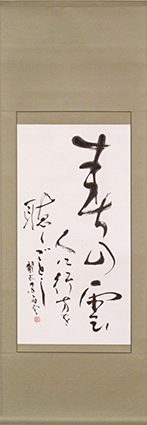 春の雲
人に行方を
聴くごとし